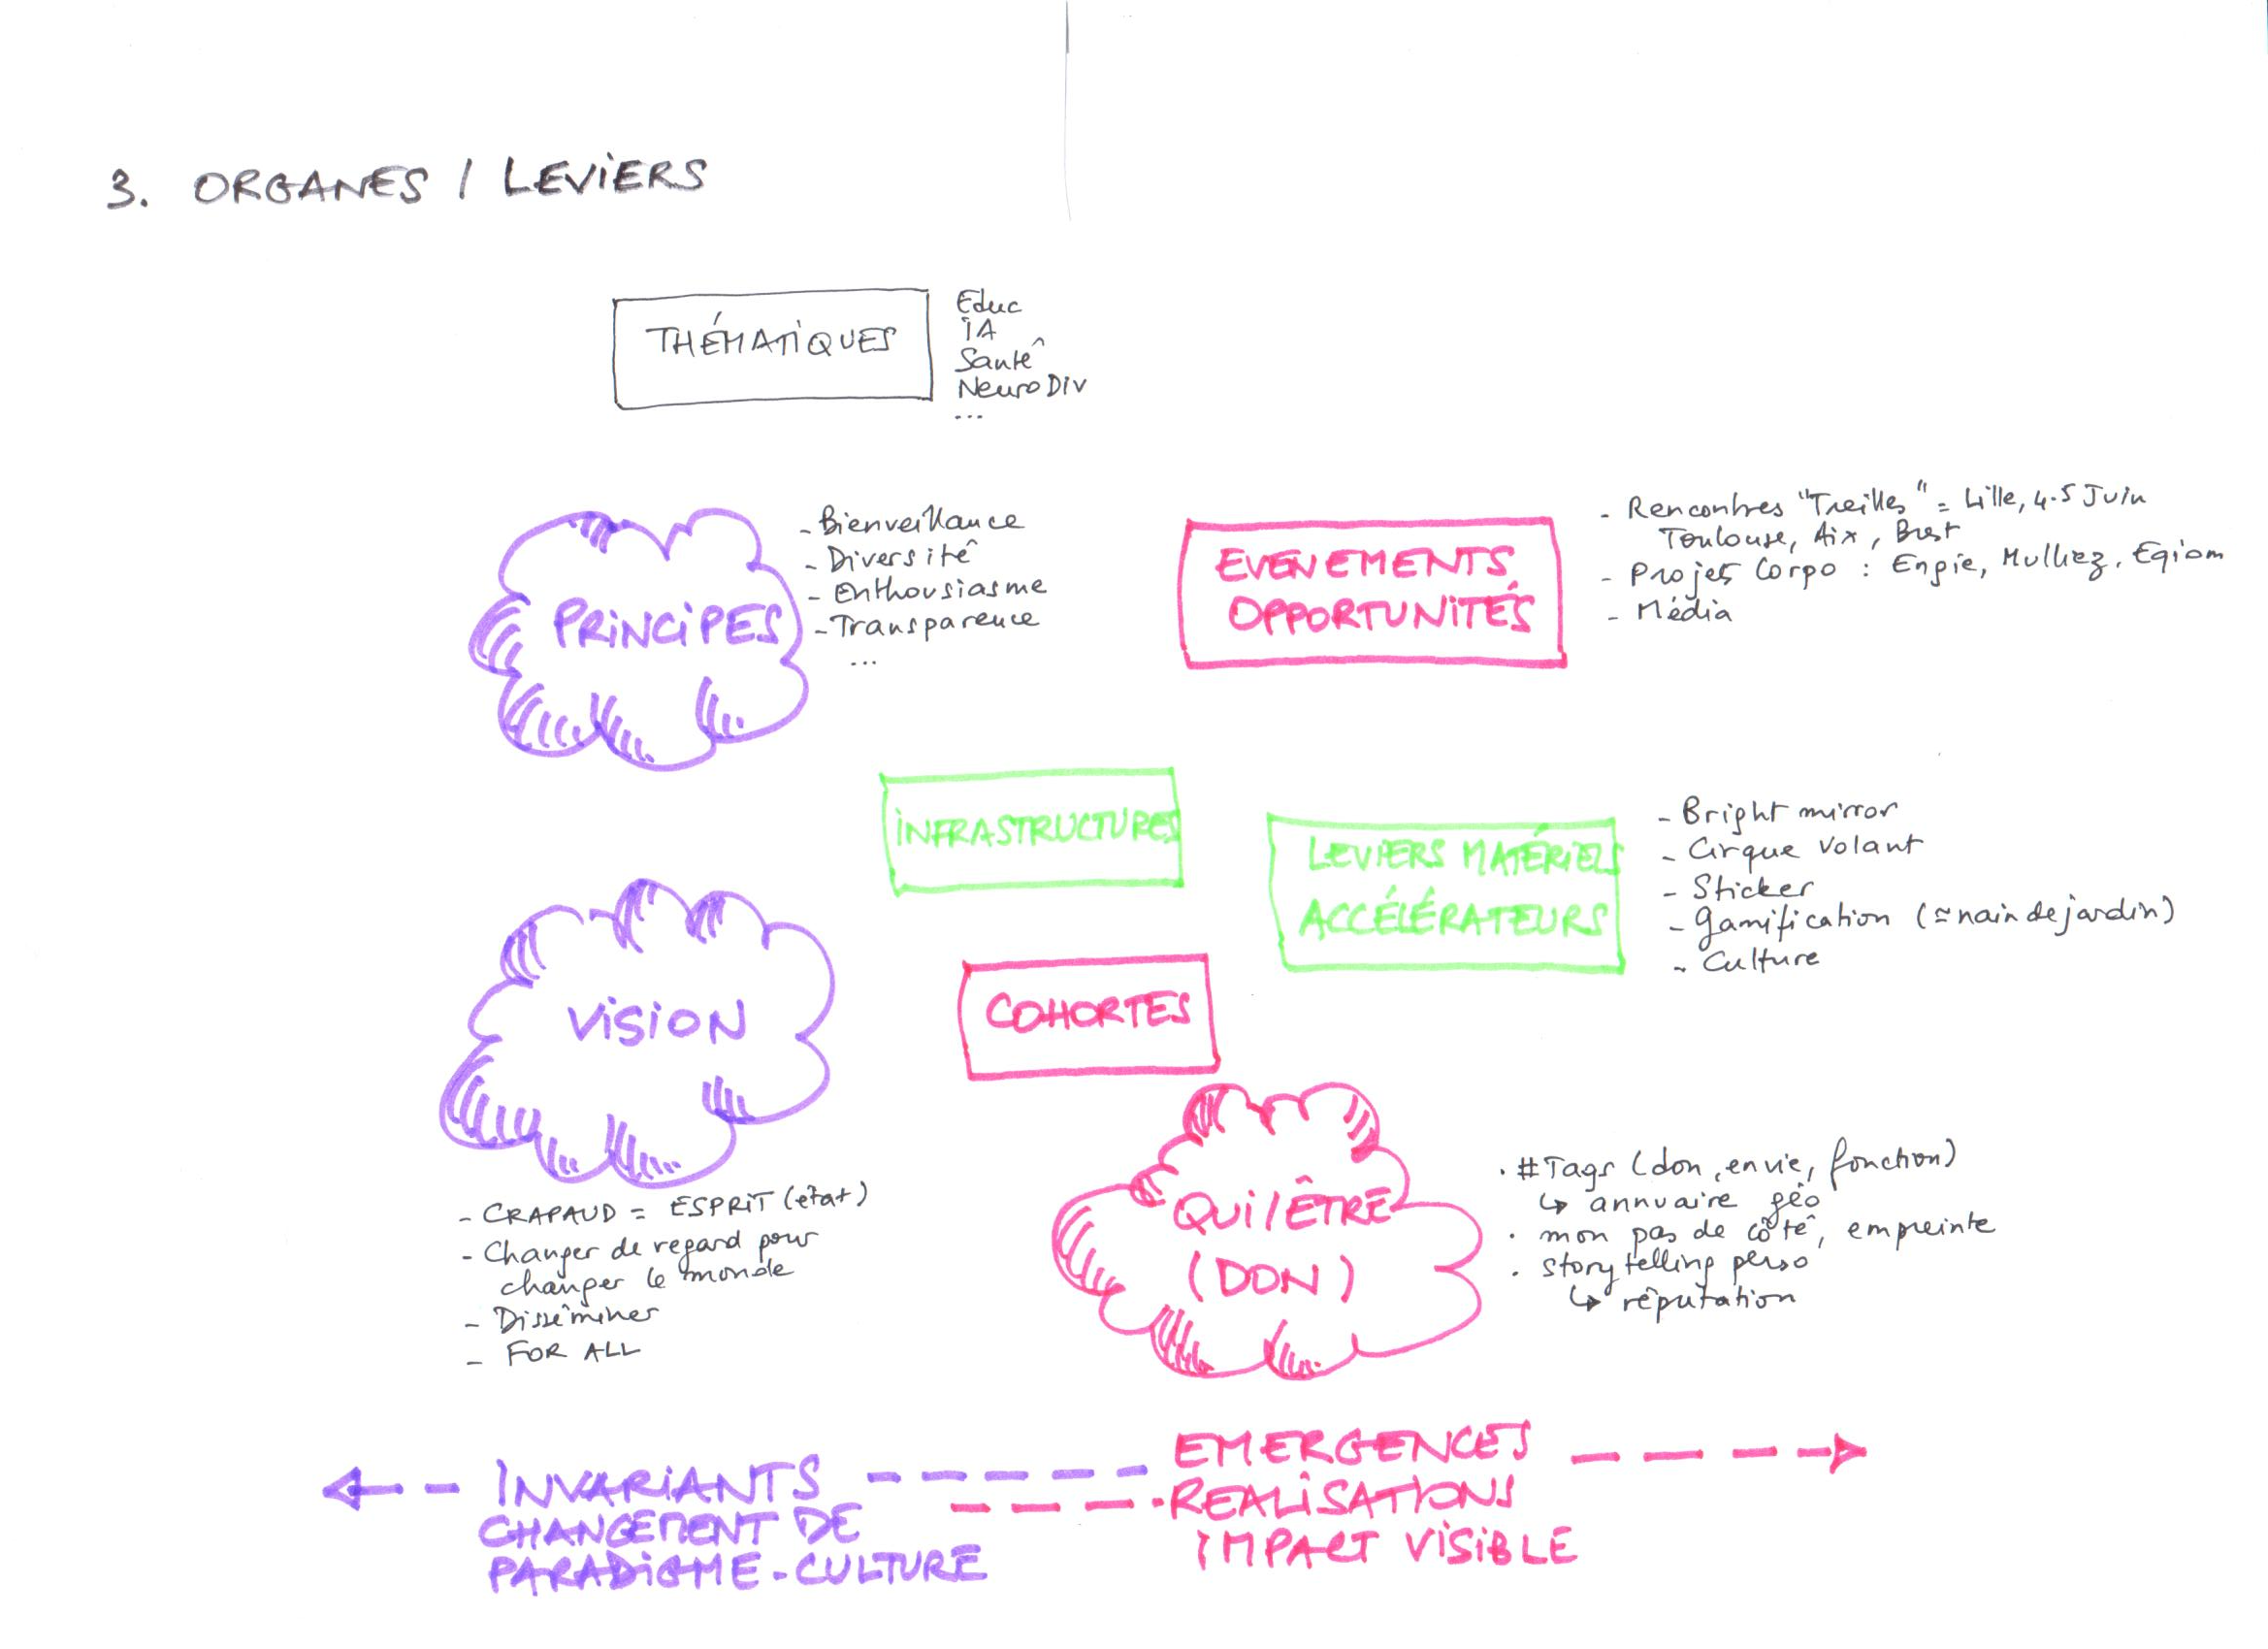 3. ORGANES / LEVIERS
THÉMATIQUES
Educ
IA
Santé
NeuroDiv
...
PRINCIPES
- Bienveillance
- Diversité
- Enthousiasme
- Transparence
...
EVENEMENTS
OPPORTUNITÉS
- Rencontres "Treilles" = Lille, 4-5 Juin
Toulouse, Aix, Brest
- Projets Corpo : Engie, Mulliez, Eqiom
- Média
INFRASTRUCTURES
LEVIERS MATÉRIELS
ACCÉLÉRATEURS
- Bright mirror
- Cirque Volant
- Sticker
- Gamification (≃ nain de jardin)
- Culture
VISION
- CRAPAUD = ESPRIT (état)
- Changer de regard pour
changer le monde
- Disséminer
- FOR ALL
COHORTES
QUI/ÊTRE
(DON)
. #Tags (don, envie, fonction)
↳ annuaire géo
. mon pas de côté, empreinte
. storytelling perso
↳ réputation
INVARIANTS
CHANGEMENT DE
PARADIGME - CULTURE
EMERGENCES
REALISATIONS
IMPACT VISIBLE